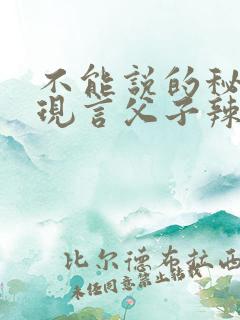 不能説的秘
現言父子辣
比尔德布拉西
未经同意禁止转载